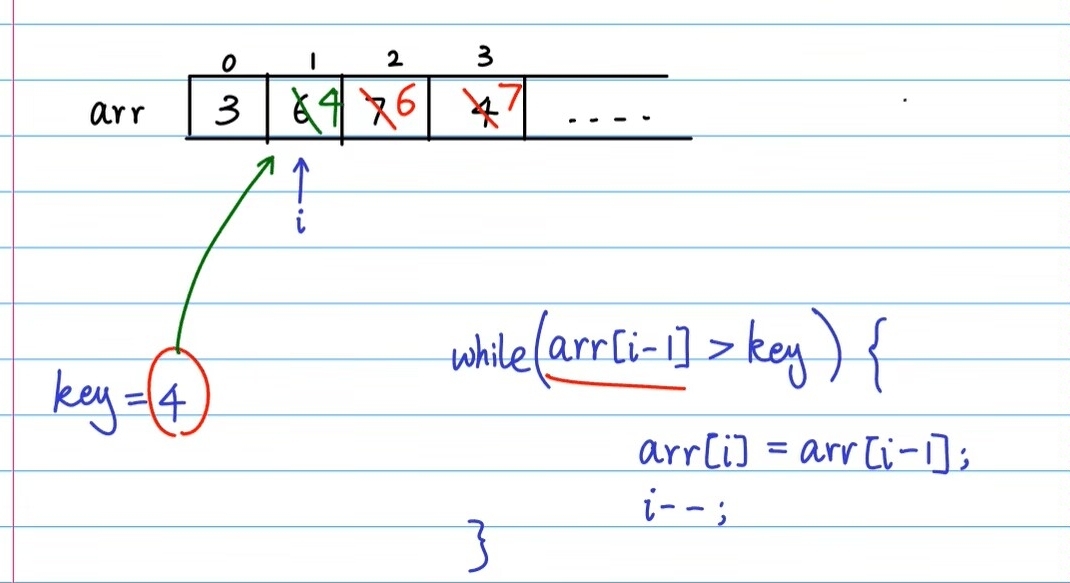 0 1 2 3
arr 3 6 4 7 6 4 7 ....
i
while(arr[i-1] > key) {
key = 4
arr[i] = arr[i-1];
i--;
}